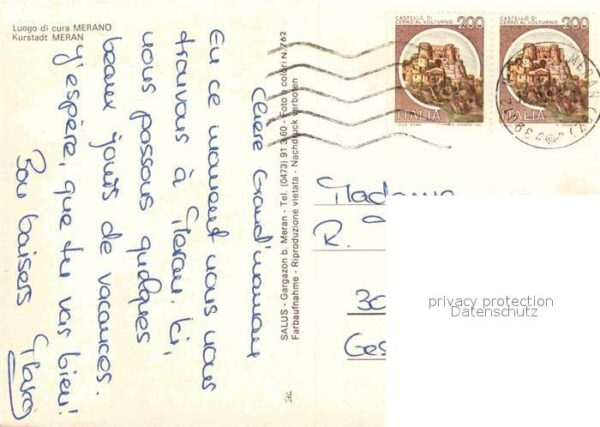 Luogo di cura MERANO
Kurstadt MERAN
Chère Grand'maman
En ce moment nous nous
trouvons à Meran. Ici,
nous passons quelques
beaux jours de vacances.
J'espère, que tu vas bien!
Bon baisers
SALUS - Gargazon b. Meran - Tel. (0473) 91 3 60 - Foto a colori N. 762
Farbaufnahme - Riproduzione vietata - Nachdruck verboten
CASTELLO DI
CERRO AL VOLTURNO
200
ITALIA
CASTELLO DI
CERRO AL VOLTURNO
200
ITALIA
Madame
R.
30
Ges
privacy protection
Datenschutz